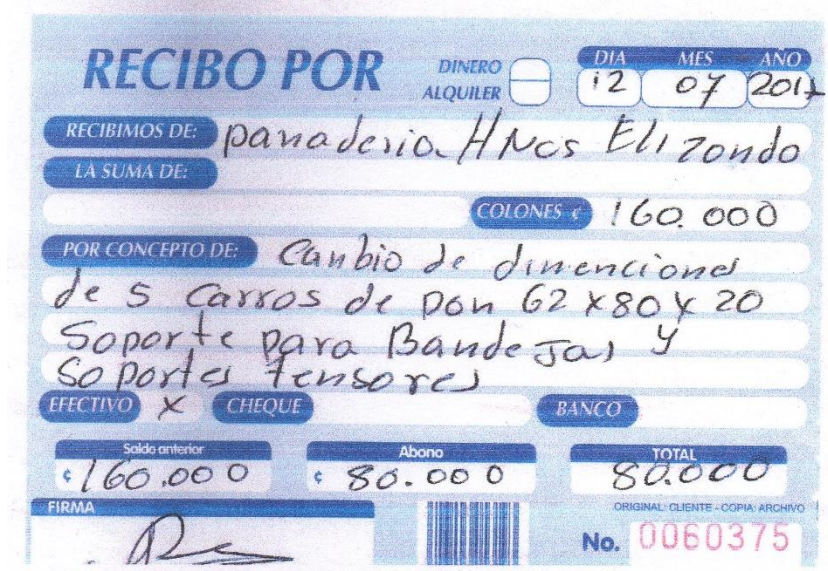 RECIBO POR
DINERO
ALQUILER
DIA MES AÑO
12 07 2017
RECIBIMOS DE: panaderia HNos Elizondo
LA SUMA DE:
COLONES ¢ 160.000
POR CONCEPTO DE: Canbio de dimenciones
de 5 Carros de pon 62 x 80 x 20
Soporte para Bandejas y
Soportes tensores
EFECTIVO X CHEQUE BANCO
Saldo anterior Abono TOTAL
¢ 160.000 ¢ 80.000 80.000
FIRMA
ORIGINAL: CLIENTE - COPIA: ARCHIVO
No. 0060375